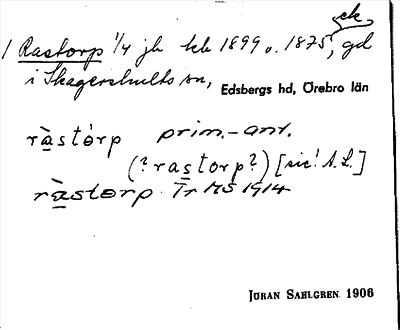 ek.
1 Rastorp 1/4 jb kb 1899 o. 1875, gd
i Skagershults sn, Edsbergs hd, Örebro län
ràstòrp prim.-ant.
(?rastorp?) [sic! A.L.]
ràstorp Tr MS 1914
JÖRAN SAHLGREN 1906